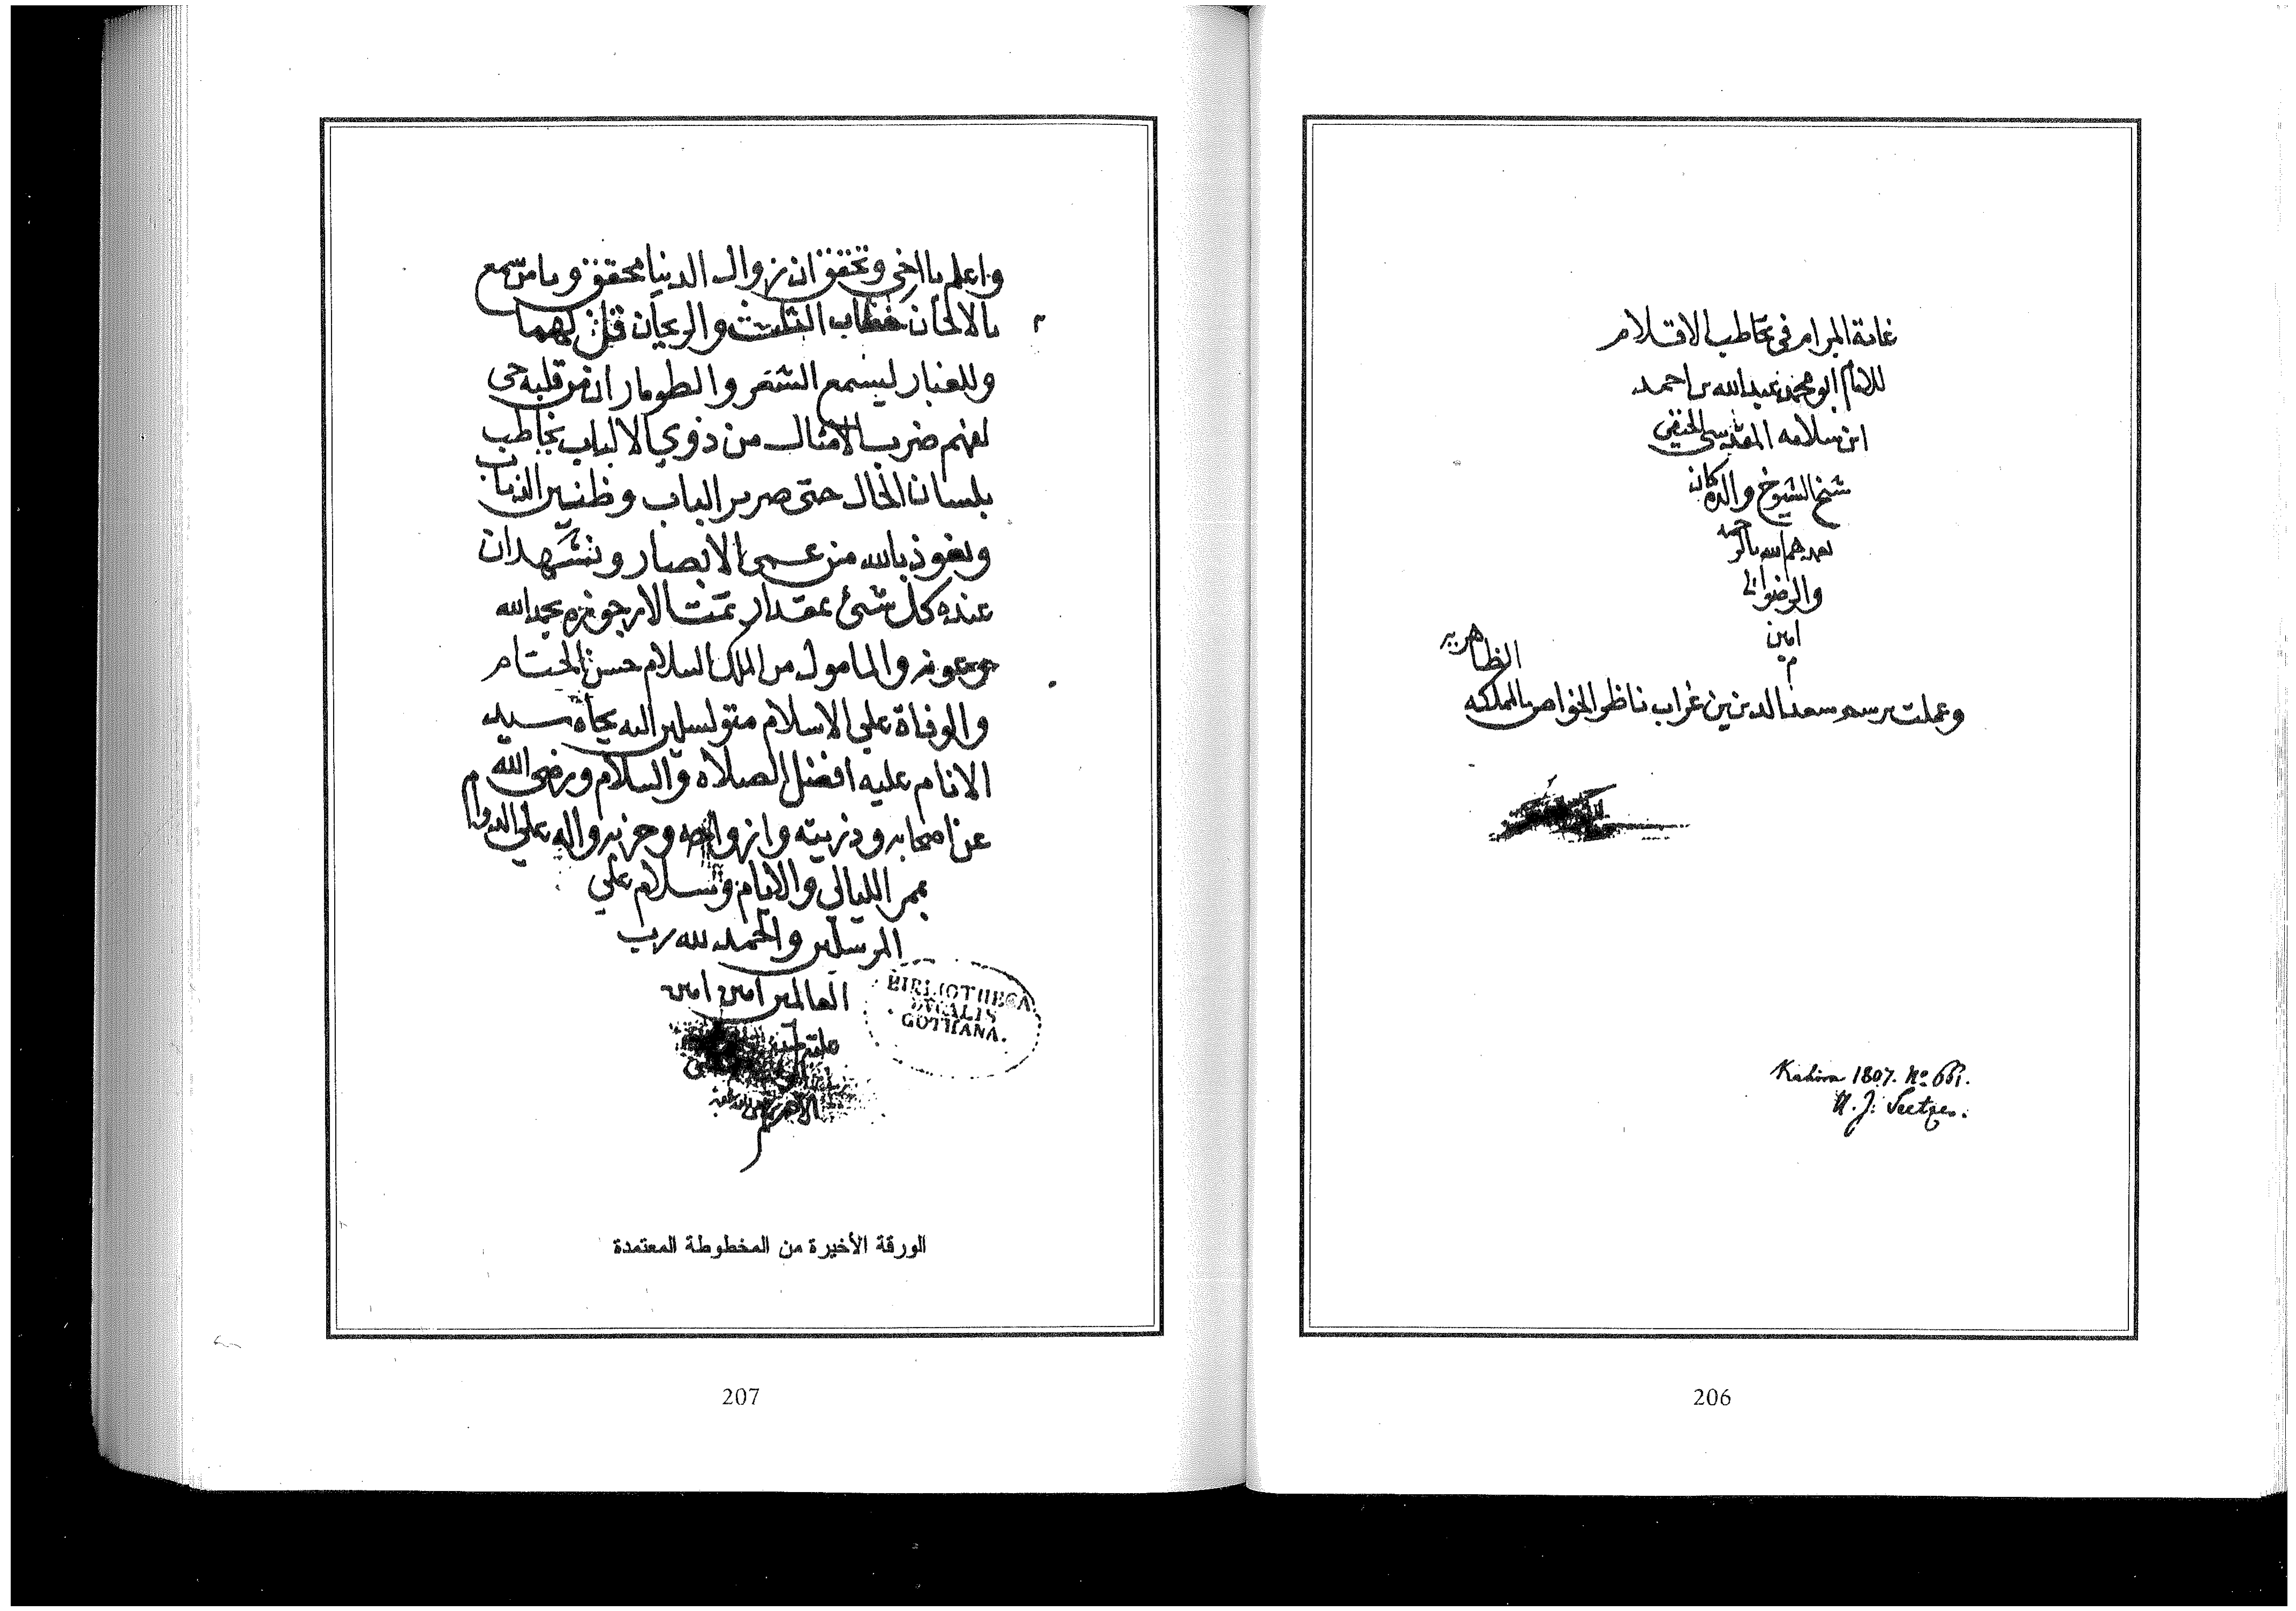 غاية المرام في تخاطب الاقلام
للامام ابو محمد عبد الله بن احمد
ابن سلامه المقدسي الحنفي
شيخ الشيوخ والده كان
تغمدهم الله بالرحمه
والرضوان
امين
م
وعملت برسم سعد الدين بن غراب ناظر الخواص بالمملكه
الظاهريه
Kahira 1807. No
U. J. Seetzen.
206
واعلم يا اخي وتحقق ان زوال الدنيا محقق ويا من سمع
بالالحان خطاب الثلث والريحان قل لهما
وللغبار ليسمع الشعر والطومار ان من قلبه حي
لفهم ضرب الامثال من ذوي الالباب تخاطب
بلسان الحال حتى صرير الباب وطنين الذباب
ونعوذ بالله من عمى الابصار ونشهد ان
عنده كل شئ بمقدار تمت الارجوزه بحمد الله
وعونه والمامول من الملك السلام حسن الختام
والوفاة على الاسلام متوسلين اليه بجاه سيد
الانام عليه افضل الصلاه والسلام ورضى الله
عن اصحابه وذريته وازواجه وحزبه واله على الدوام
بممر الليالي والايام وسلام علي
المرسلين والحمد لله رب
العالمين امين امين
BIBLIOTHECA
DUCALIS
GOTHANA.
الورقة الأخيرة من المخطوطة المعتمدة
207